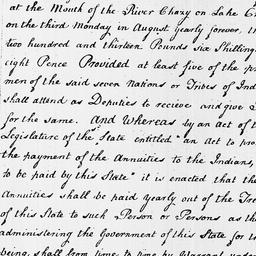 at the Mouth of the River Chazy on Lake
on the third Monday in August yearly forever,
two hundred and thirteen Pounds six Shilling
eight Pence Provided at least five of the
men of the said seven Nations or Tribes of Ind
shall attend as Deputies to recieve and give
for the same. And Whereas by an Act of t
Legislature of the State entitled "an Act to pro
the payment of the Annuities to the Indians,
to be paid by this State" it is enacted that the
Annuities shall be paid yearly out of the Tre
of this State to such Person or Persons as th
administering the Government of this State for t
being, shall from time to time by Warrant unde